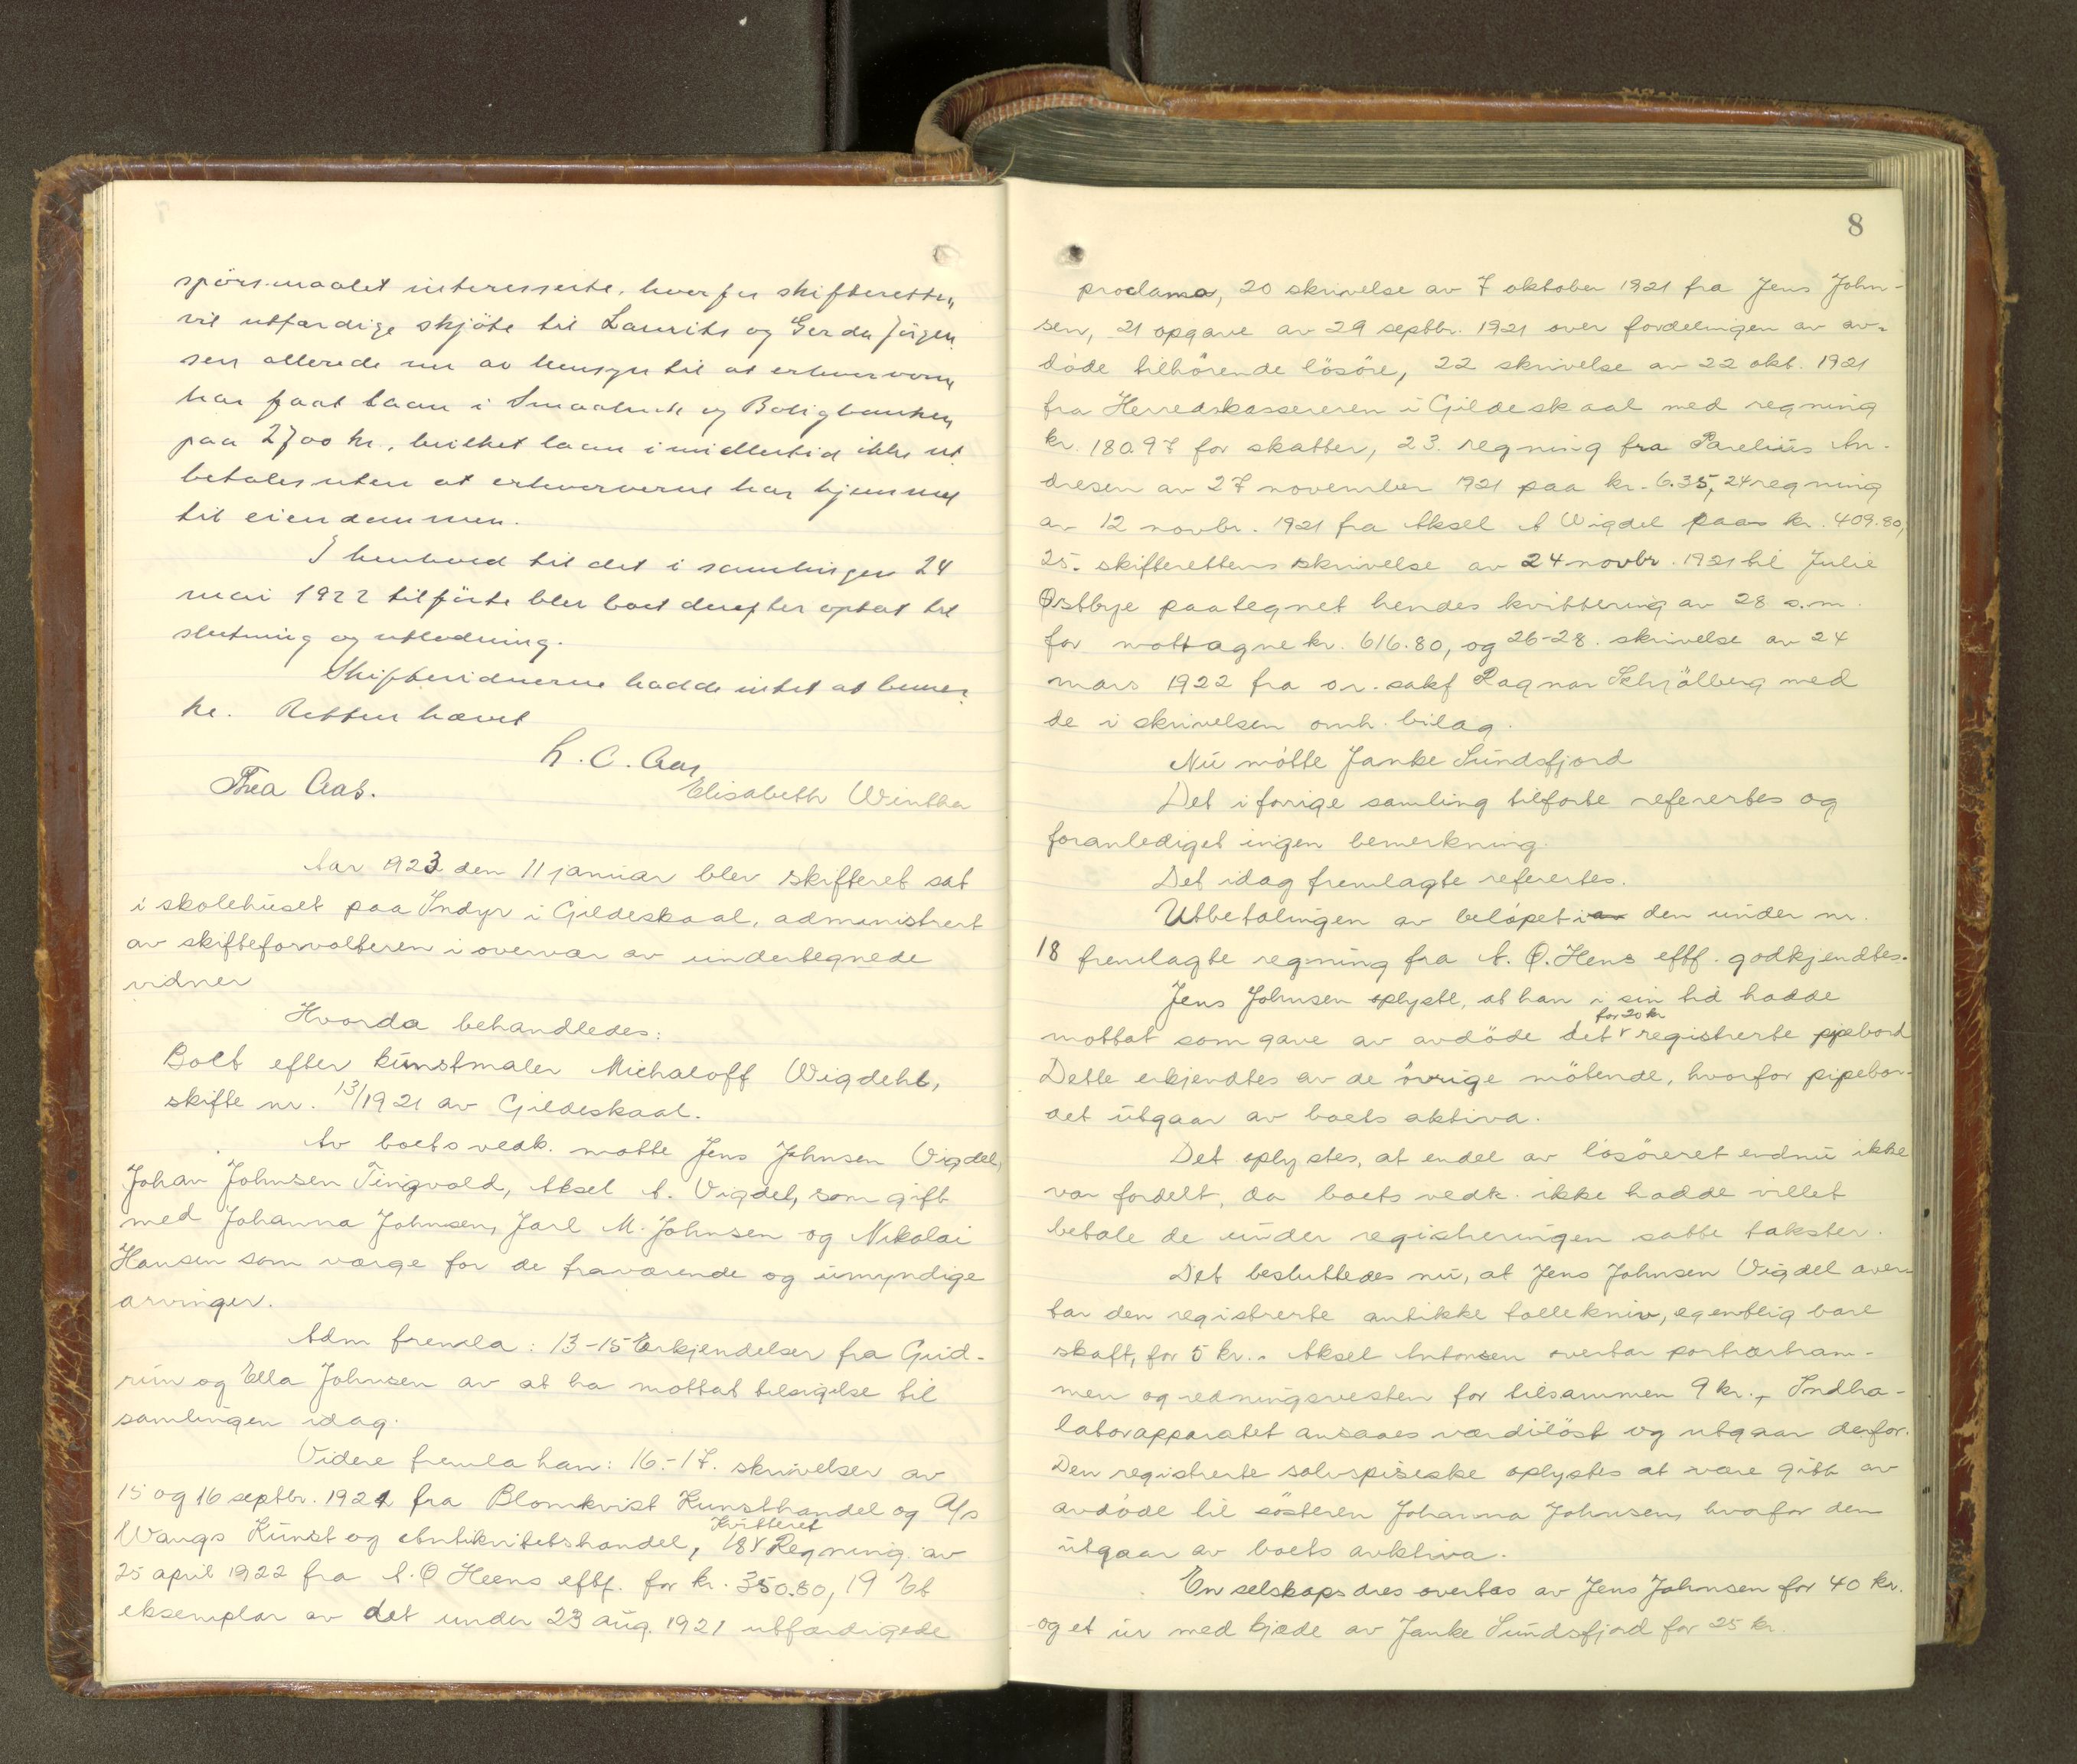 spörsmaalet interesserte, hvorfor skifteretten
vil utfærdige skjöte til Laurits og Gerda Jörgen
sen allerede nu av hensyn til at erhververne
har faat laan i Smaabruk og Boligbanken
paa 2700 kr., hvilket laan imidlertid ikke ut
betales uten at erhververne har hjemmel
til eiendommen.
I henhold til det i samlingen 24
mai 1922 tilförte blev boet derefter optat til
slutning og utlodning.
Skiftevidnerne hadde intet at bemer
ke. Retten hævet
L. C. Aas
Thea Aas.
Elisabeth Winther
Aar 1923 den 11 januar blev skifteret sat
i skolehuset paa Indyr i Gildeskaal, administrert
av skifteforvalteren i overvær av undertegnede
vidner
Hvorda behandledes:
Boet efter kunstmaler Michaloff Wigdehl,
skifte nr. 13/1921 av Gildeskaal.
Av boets vedk. møtte Jens Johnsen Vigdel,
Johan Johnsen Tingvold, Aksel A. Vigdel, som gift
med Johanna Johnsen, Jarl M. Johnsen og Nikolai
Hansen som værge for de fraværende og umyndige
arvinger.
Adm fremla: 13-15 Erkjendelser fra Gud-
run og Ella Johnsen av at ha mottat tilsigelse til
samlingen idag.
Videre fremla han: 16.-17. skrivelser av
15 og 16 septbr. 1921 fra Blomkvist Kunsthandel og A/s
Wangs Kunst og Antikvitetshandel, 18 Kvitteret Regning av
25 april 1922 fra A. O Heens eftf. for kr. 350.80, 19 Et
eksemplar av det under 23 aug. 1921 utfærdigede
8
proclama, 20 skrivelse av 7 oktober 1921 fra Jens John-
sen, 21 opgave av 29 septbr. 1921 over fordelingen av av-
døde tilhörende lösöre, 22 skrivelse av 22 okt. 1921
fra Herredskassereren i Gildeskaal med regning
kr. 180.97 for skatter, 23. regning fra Parelius An-
dresen av 27 november 1921 paa kr. 6.35, 24 regning
av 12 novbr. 1921 fra Aksel A Wigdel paa kr. 409.80,
25. skifterettens skrivelse av 24 novbr. 1921 til Julie
Østbye paategnet hendes kvittering av 28 s.m.
for mottagne kr. 616.80, og 26-28. skrivelse av 24
mars 1922 fra o.r. sakf Ragnar Schjölberg med
de i skrivelsen omh. bilag.
Nu møtte Janke Sundsfjord
Det i forige samling tilførte referertes og
foranlediget ingen bemerkning.
Det idag fremlagte referertes.
Utbetalingen av beløpet i den under nr.
18 fremlagte regning fra A. O. Hens eftf. godkjendtes.
Jens Johnsen oplyste, at han i sin tid hadde
mottat som gave av avdöde det for 20 kr registrerte pipebord
Dette erkjendtes av de övrige mötende, hvorfor pipebor-
det utgaar av boets aktiva.
Det oplystes, at endel av lösöreret endnu ikke
var fordelt, da boets vedk. ikke hadde villet
betale de under registreringen satte takster.
Det besluttedes nu, at Jens Johnsen Vigdel over-
tar den registrerte antikke tollekniv, egentlig bare
skaft, for 5 kr.. Aksel Antonsen overtar portrætram-
men og redningsvesten for tilsammen 9 kr., Indha-
latorapparatet ansaaes værdilöst og utgaar derfor.
Den registrerte sølvspiseske oplystes at være git av
avdøde til søsteren Johanna Johnsen, hvorfor den
utgaar av boets avktiva.
En selskapsdres overtas av Jens Johnsen for 40 kr.
og et ur med kjæde av Janke Sundsfjord for 25 kr.